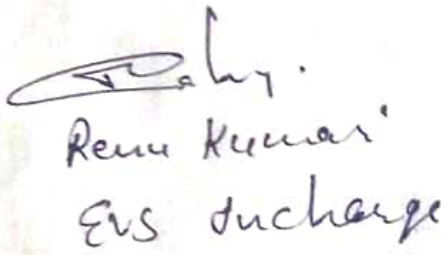 Renu Kumari
EVS Incharge